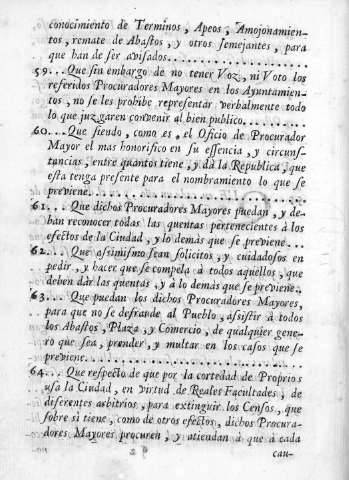 conocimiento de Terminos, Apeos, Amojonamien-
tos, remate de Abastos, y otros semejantes, para
que han de ser avisados.
59....Que sin embargo de no tener Voz, ni Voto los
referidos Procuradores Mayores en los Ayuntamien-
tos, no se les prohibe representar verbalmente todo
lo que juzgaren convenir al bien publico.
60....Que siendo, como es, el Oficio de Procurador
Mayor el mas honorifico en su essencia, y circuns-
tancias, entre quantos tiene, y dà la Republica, que
esta tenga presente para el nombramiento lo que se
previene.
61....Que dichos Procuradores Mayores puedan, y de-
ban reconocer todas las quentas pertenecientes à los
efectos de la Ciudad, y lo demàs que se previene...
62....Que assimismo sean solicitos, y cuidadosos en
pedir, y hacer que se compela à todos aquellos, que
deben dàr las quentas, y à lo demàs que se previene.
63....Que puedan los dichos Procuradores Mayores,
para que no se defraude al Pueblo, assistir à todos
los Abastos, Plaza, y Comercio, de qualquier gene-
ro que sea, prender, y multar en los casos que se
previene.
64....Que respecto de que por la cortedad de Proprios
usa la Ciudad, en virtud de Reales Facultades, de
diferentes arbitrios, para extinguir los Censos, que
sobre sì tiene, como de otros efectos, dichos Procura-
dores Mayores procuren, y atiendan à que à cada
cau-